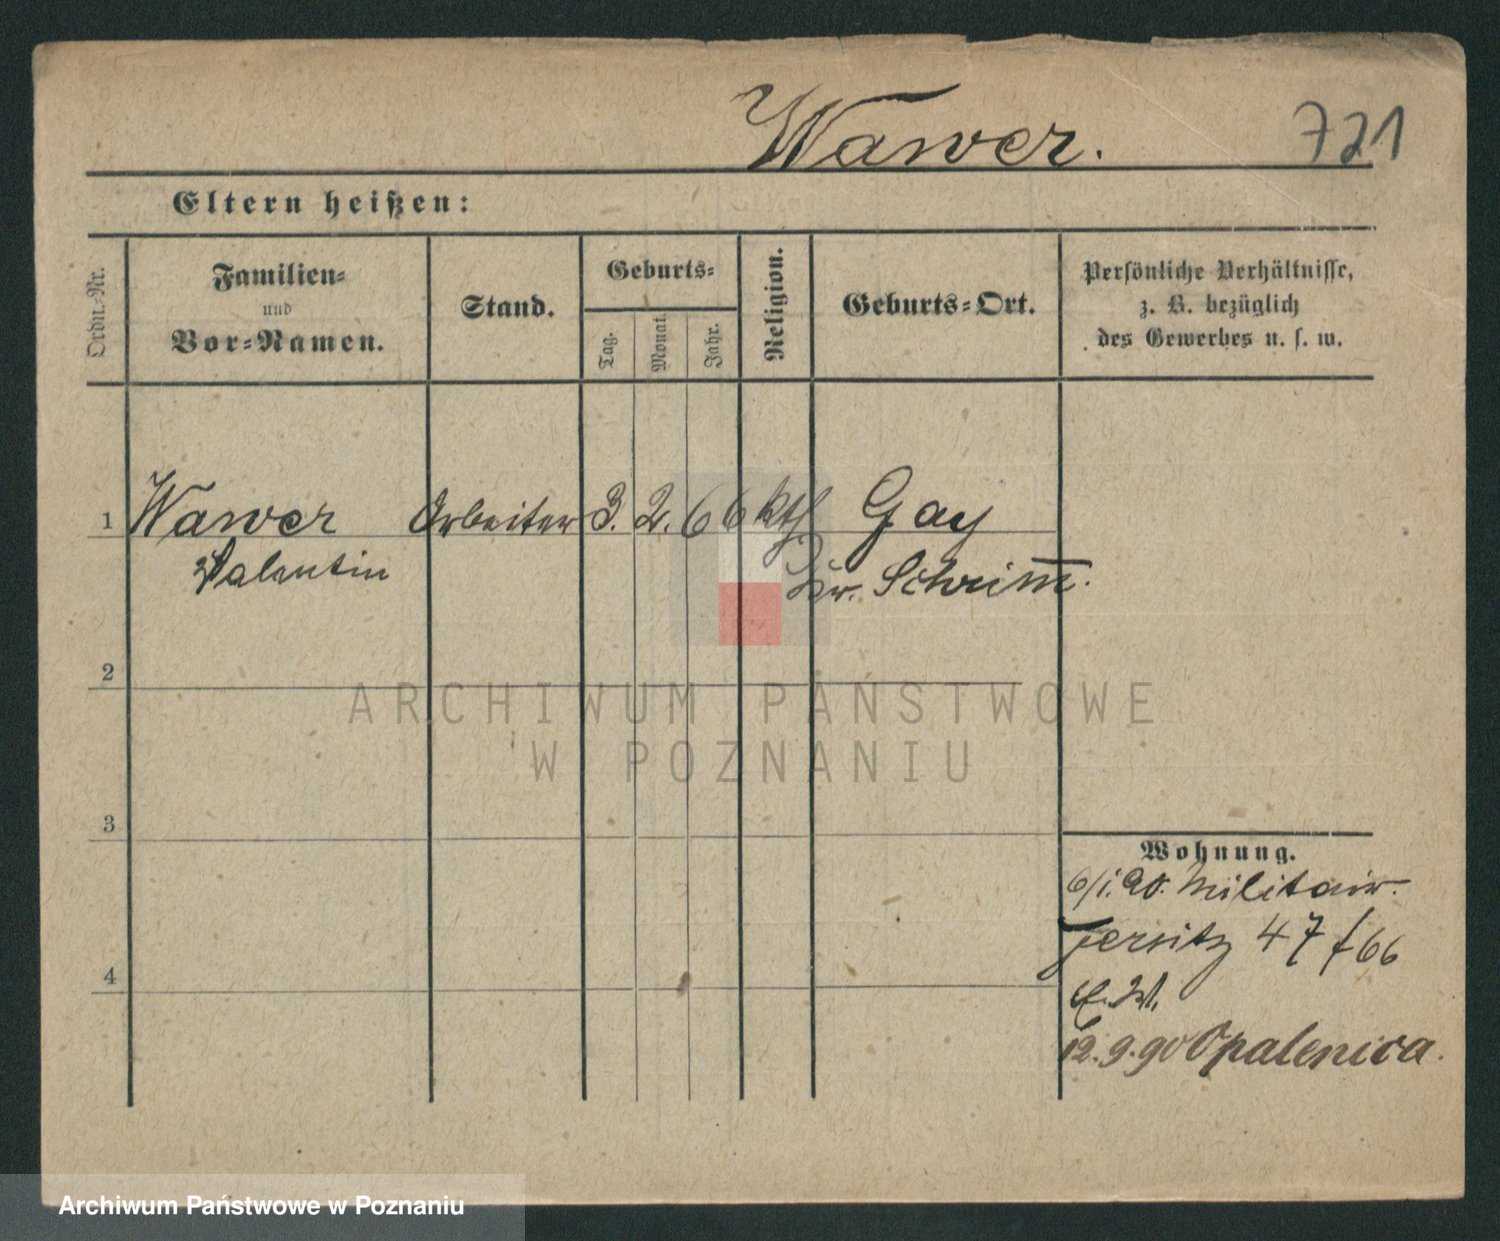 Wawer. 721
Eltern heißen:
Ordn.-Nr.
Familien-
und
Vor-Namen.
Stand.
Geburts-
Tag.
Monat.
Jahr.
Religion.
Geburts-Ort.
Persönliche Verhältnisse,
z. B. bezüglich
des Gewerbes u. s. w.
1 Wawer Arbeiter 3. 2. 66 kth Gay
Valentin Kr. Schrimm.
2
ARCHIWUM PAŃSTWOWE
W POZNANIU
3
Wohnung.
6/1. 90. Militair.
Jersitz 47 f 66
4
12.9.90 Opalenica.
Archiwum Państwowe w Poznaniu